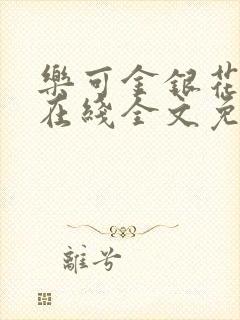 樂可金銀花
在綫全文免
離兮